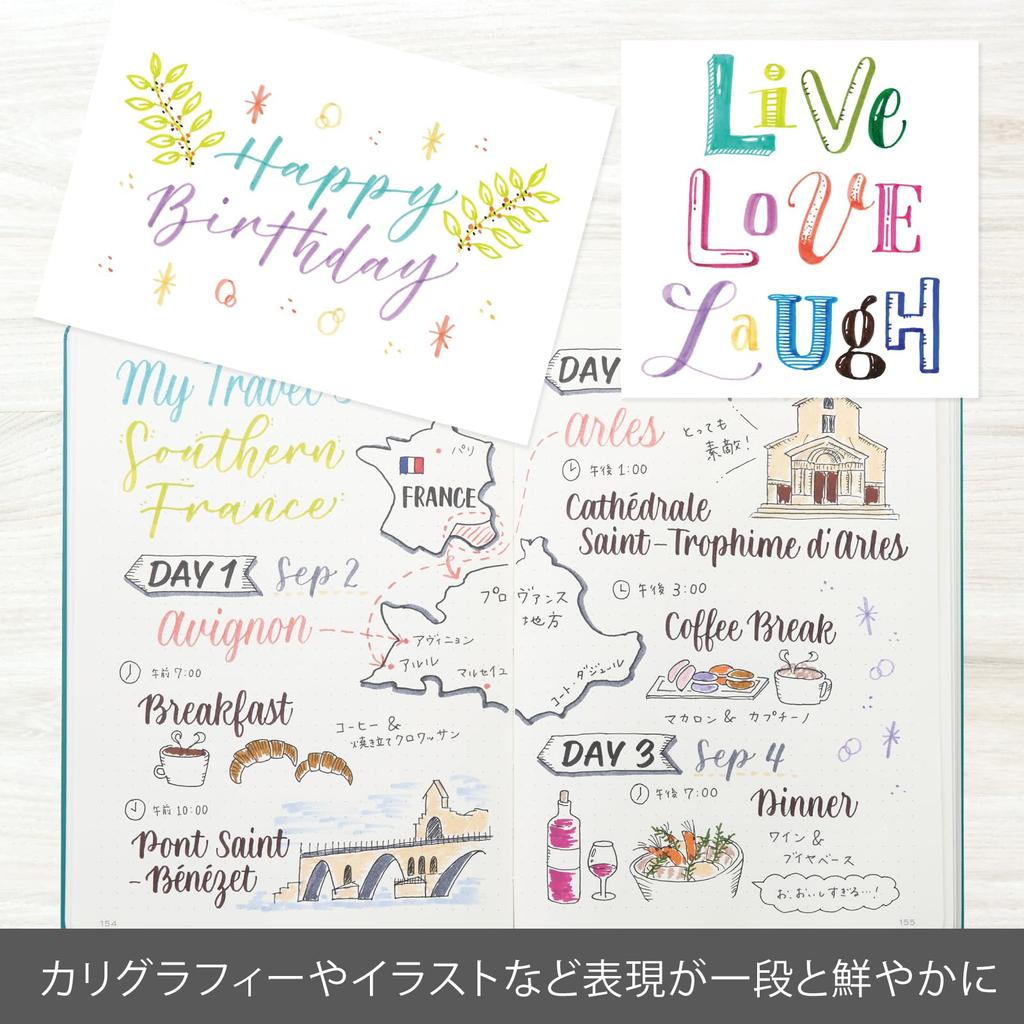 Happy
Birthday
Live
Love
Laugh
My Travel
Southern
France
パリ
FRANCE
DAY 1 Sep 2
Avignon
午前 7:00
Breakfast
コーヒー &
焼き立てクロワッサン
午前 10:00
Pont Saint
-Bénézet
154
プロヴァンス
地方
アヴィニョン
アルル
マルセイユ
コート・ダジュール
DAY
Arles
とっても
素敵!
午後 1:00
Cathédrale
Saint-Trophime d'Arles
午後 3:00
Coffee Break
マカロン & カプチーノ
DAY 3 Sep 4
午後 7:00
Dinner
ワイン &
ブイヤベース
お、おいしすぎる…!
155
カリグラフィーやイラストなど表現が一段と鮮やかに